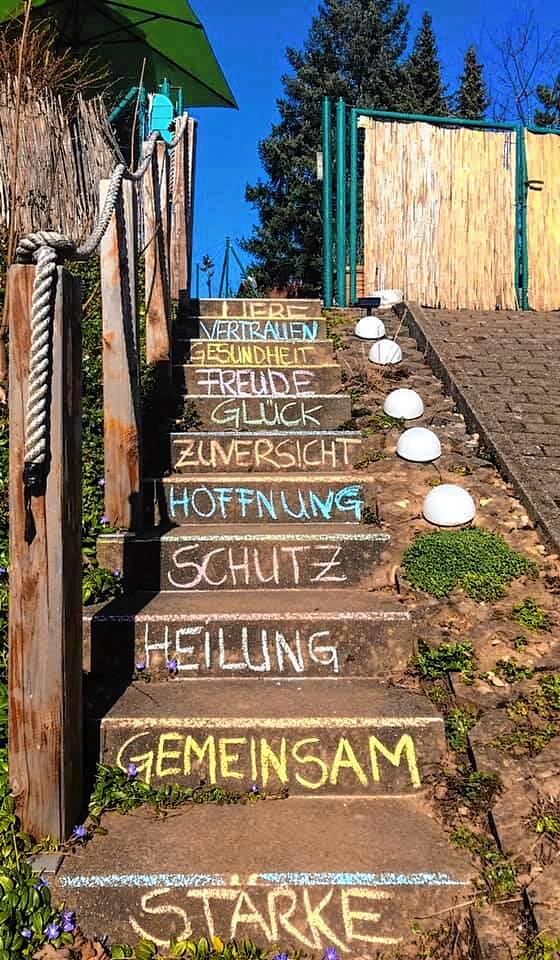 LIEBE
VERTRAUEN
GESUNDHEIT
FREUDE
GLÜCK
ZUVERSICHT
HOFFNUNG
SCHUTZ
HEILUNG
GEMEINSAM
STÄRKE